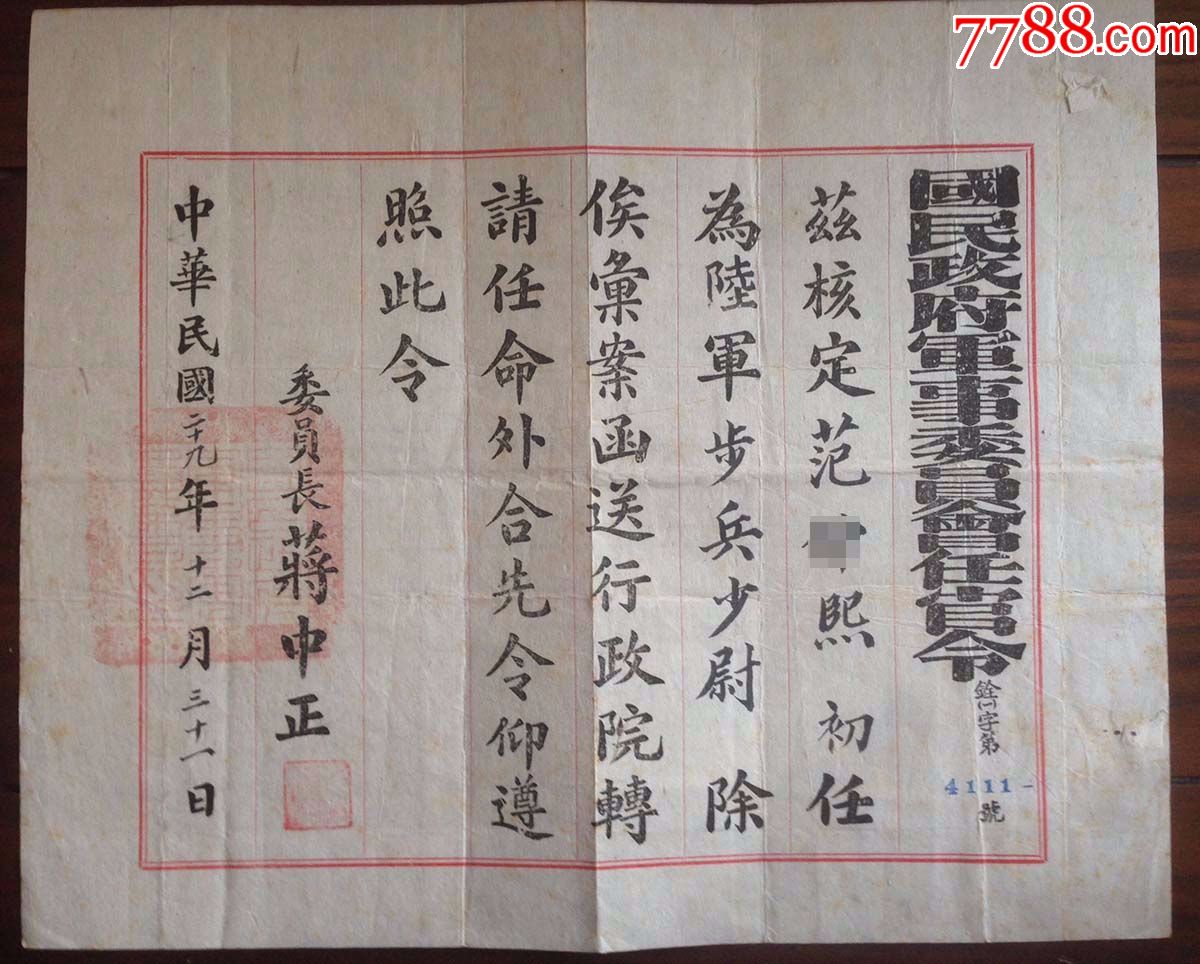 7788.com
國民政府軍事委員會任官令
銓 字第
4111-
號
茲核定范 熙初任
為陸軍步兵少尉除
俟彙案函送行政院轉
請任命外合先令仰遵
照此令
委員長蔣中正
中華民國二十九年十二月三十一日